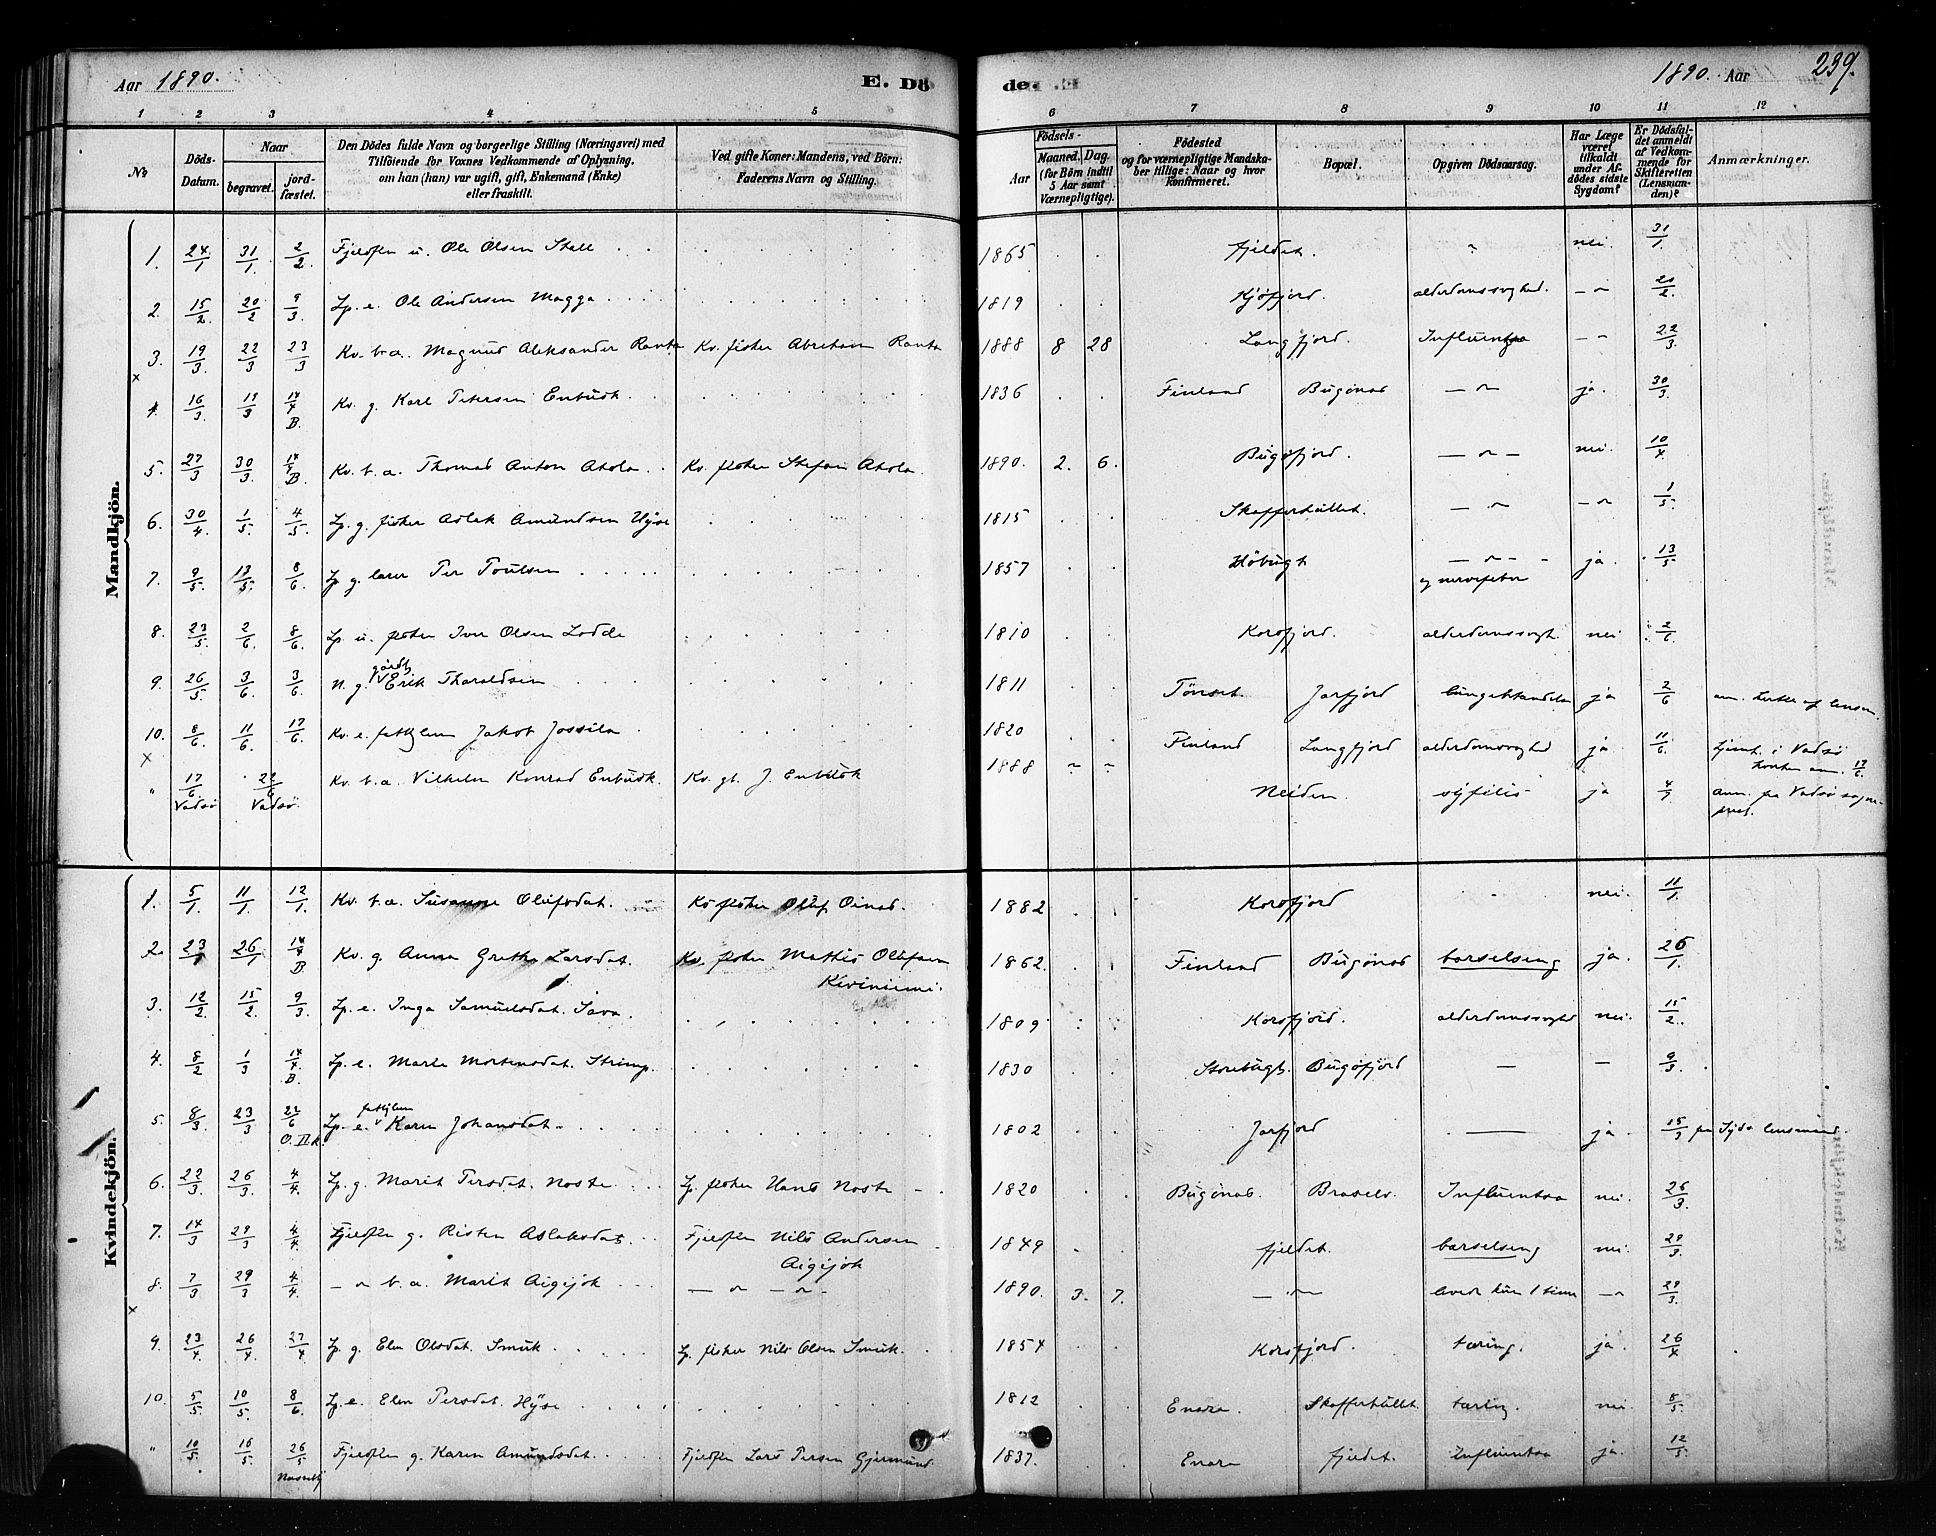 Aar 1890. E. Dö de. 1890. Aar 239.
1 2 3 4 5 6 7 8 9 10 11 12
No Döds-Datum. Naar begravet. jordfæstet. Den Dödes fulde Navn og borgerlige Stilling (Næringsvei) med Tilföiende for Voxnes Vedkommende af Oplysning, om han (hun) var ugift, gift, Enkemand (Enke) eller fraskilt. Ved gifte Koner: Mandens, ved Börn: Faderens Navn og Stilling. Födsels- Aar Maaned. Dag. (for Börn indtil 5 Aar samt Værnepligtige). Födested og for værnepligtige Mandskaber tillige: Naar og hvor konfirmeret. Bopæl. Opgiven Dödsaarsag. Har Læge været tilkaldt under Afdödes sidste Sygdom? Er Dödsfaldet anmeldt af Vedkommende for Skifteretten (Lensmanden)? Anmærkninger.
Mandkjön.
1. 24/1 31/1 2/2 Fjeldfin u. Ole Olsen Stall 1865 fjeldet. " nei. 31/1
2. 15/2 20/2 9/3 Lp. e. Ole Andersen Magga 1819 Kjøfjord. alderdomssvaghed. — " 20/2
3. 19/3 22/3 23/3 Kv. b. a. Magnus Aleksander Ranta Kv. fisker Abraham Ranta 1888 8 28 Langfjord. Influentsa — " 22/3
4. 16/3 19/3 14/4 B. Kv. g. Karl Petersen Enbusk 1836 Finland Bugønæs — " ja. 30/3
5. 27/3 30/3 14/4 B. Kv. b. a. Thomas Anton Ahola Kv. fisker Stefan Ahola 1890. 2. 6. Bugøfjord. — " — nei. 10/4
6. 30/4 1/5 4/5 Lp. g. fisker Aslak Amundsen Hyse 1815 Skafferhullet. — " — " 1/5
7. 9/5 13/5 8/6 Lp g. lærer Per Poulsen 1857 Høbugt — " — ja. 13/5
og nervefeber
8. 23/5 2/6 8/6 Lp u. fisker Iver Olsen Lodde 1810 Korsfjord. alderdomssvagh. nei 2/6
9. 26/5 3/6 3/6 N. g. gårdb Erik Tharaldsen 1811 Tønset. Jarfjord lungebetændelse ja 2/6
10. 8/6 11/6 17/6 Kv. e. fattiglem Jakob Jossila 1820 Finland Langfjord alderdomssvaghed ja 11/6
" 17/6 Vadsø 22/6 Vadsø. Kv. b. a. Vilhelm Konrad Enbusk. Kv. gb. J. Enbusk 1888 " " Neiden. syfilis ja 4/7 anm. på Vadsø sogneprest.
Kvindekjön.
1. 5/1 11/1 12/1 Kv. b. a. Susanne Olufsdat. Kv fisker Oluf Oinas. 1882 Korsfjord " nei. 11/1
2. 23/1 26/1 14/4 B Kv. g. Anna Grethe Larsdat. Kv. fisker Mathis Olufsen Kiviniemi. 1862. Finland Bugønæs barselseng ja. 26/1.
3. 12/2 15/2 9/3 Lp. e. Inga Samuelsdat. Sava. 1809 Korsfjord. alderdomssvaghed nei. 15/2
4. 8/2 1/3 14/4. B. Lp. e. Marte Mortensdat. Strimp. 1830 Storebugt. Bugøfjord — — 9/3
5. 8/3 23/3 22/6 Lp. e. fattiglem Karen Johansdat. 1802 Jarfjord — ja. 15/3
6. 22/3 26/3 4/4 Lp. g. Marit Persdat. Noste Lp. fisker Hans Noste 1820 Bugønæs. Brasels. Influentsa nei. 26/3
7. 14/3 29/3 4/4 Fjeldfin g. Risten Aslaksdat. Fjeldfin Nils Andersen Aigijok 1849 fjeldet. barselseng nei. 29/3
8. 7/3 29/3 4/4 — " b. a. Marit Aigijok — " — " — 1890. 3. 7. — " levede kun 1 time — " 29/3
9. 23/4 26/4 27/4 Lp. g. Elen Olsdat. Smuk Lp. fisker Nils Olsen Smuk. 1854 Korsfjord. tæring. ja. 26/4
10. 5/5 10/5 8/6 Lp. e. Elen Persdat. Hyse 1812 Enare. Skafferhullet. tæring nei. 8/5
" 10/5 16/5 26/5 Fjeldfin g. Karen Amundsdat. Fjeldfin Lars Persen Gjermund. 1837. Enare fjeldet. Influentsa ja. 12/5